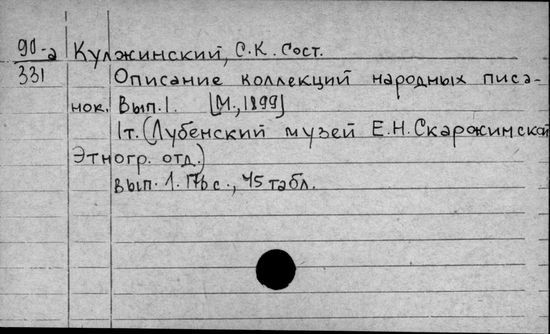 90-а Кулжинский, С.К. Сост.
331 Описание коллекций народных писа-
нок. Вып.1. [М., 1899]
1т. (Лубенский музей Е.Н. Скаржинской
Этногр. отд.)
Вып. 1. 176 с., 45 табл.